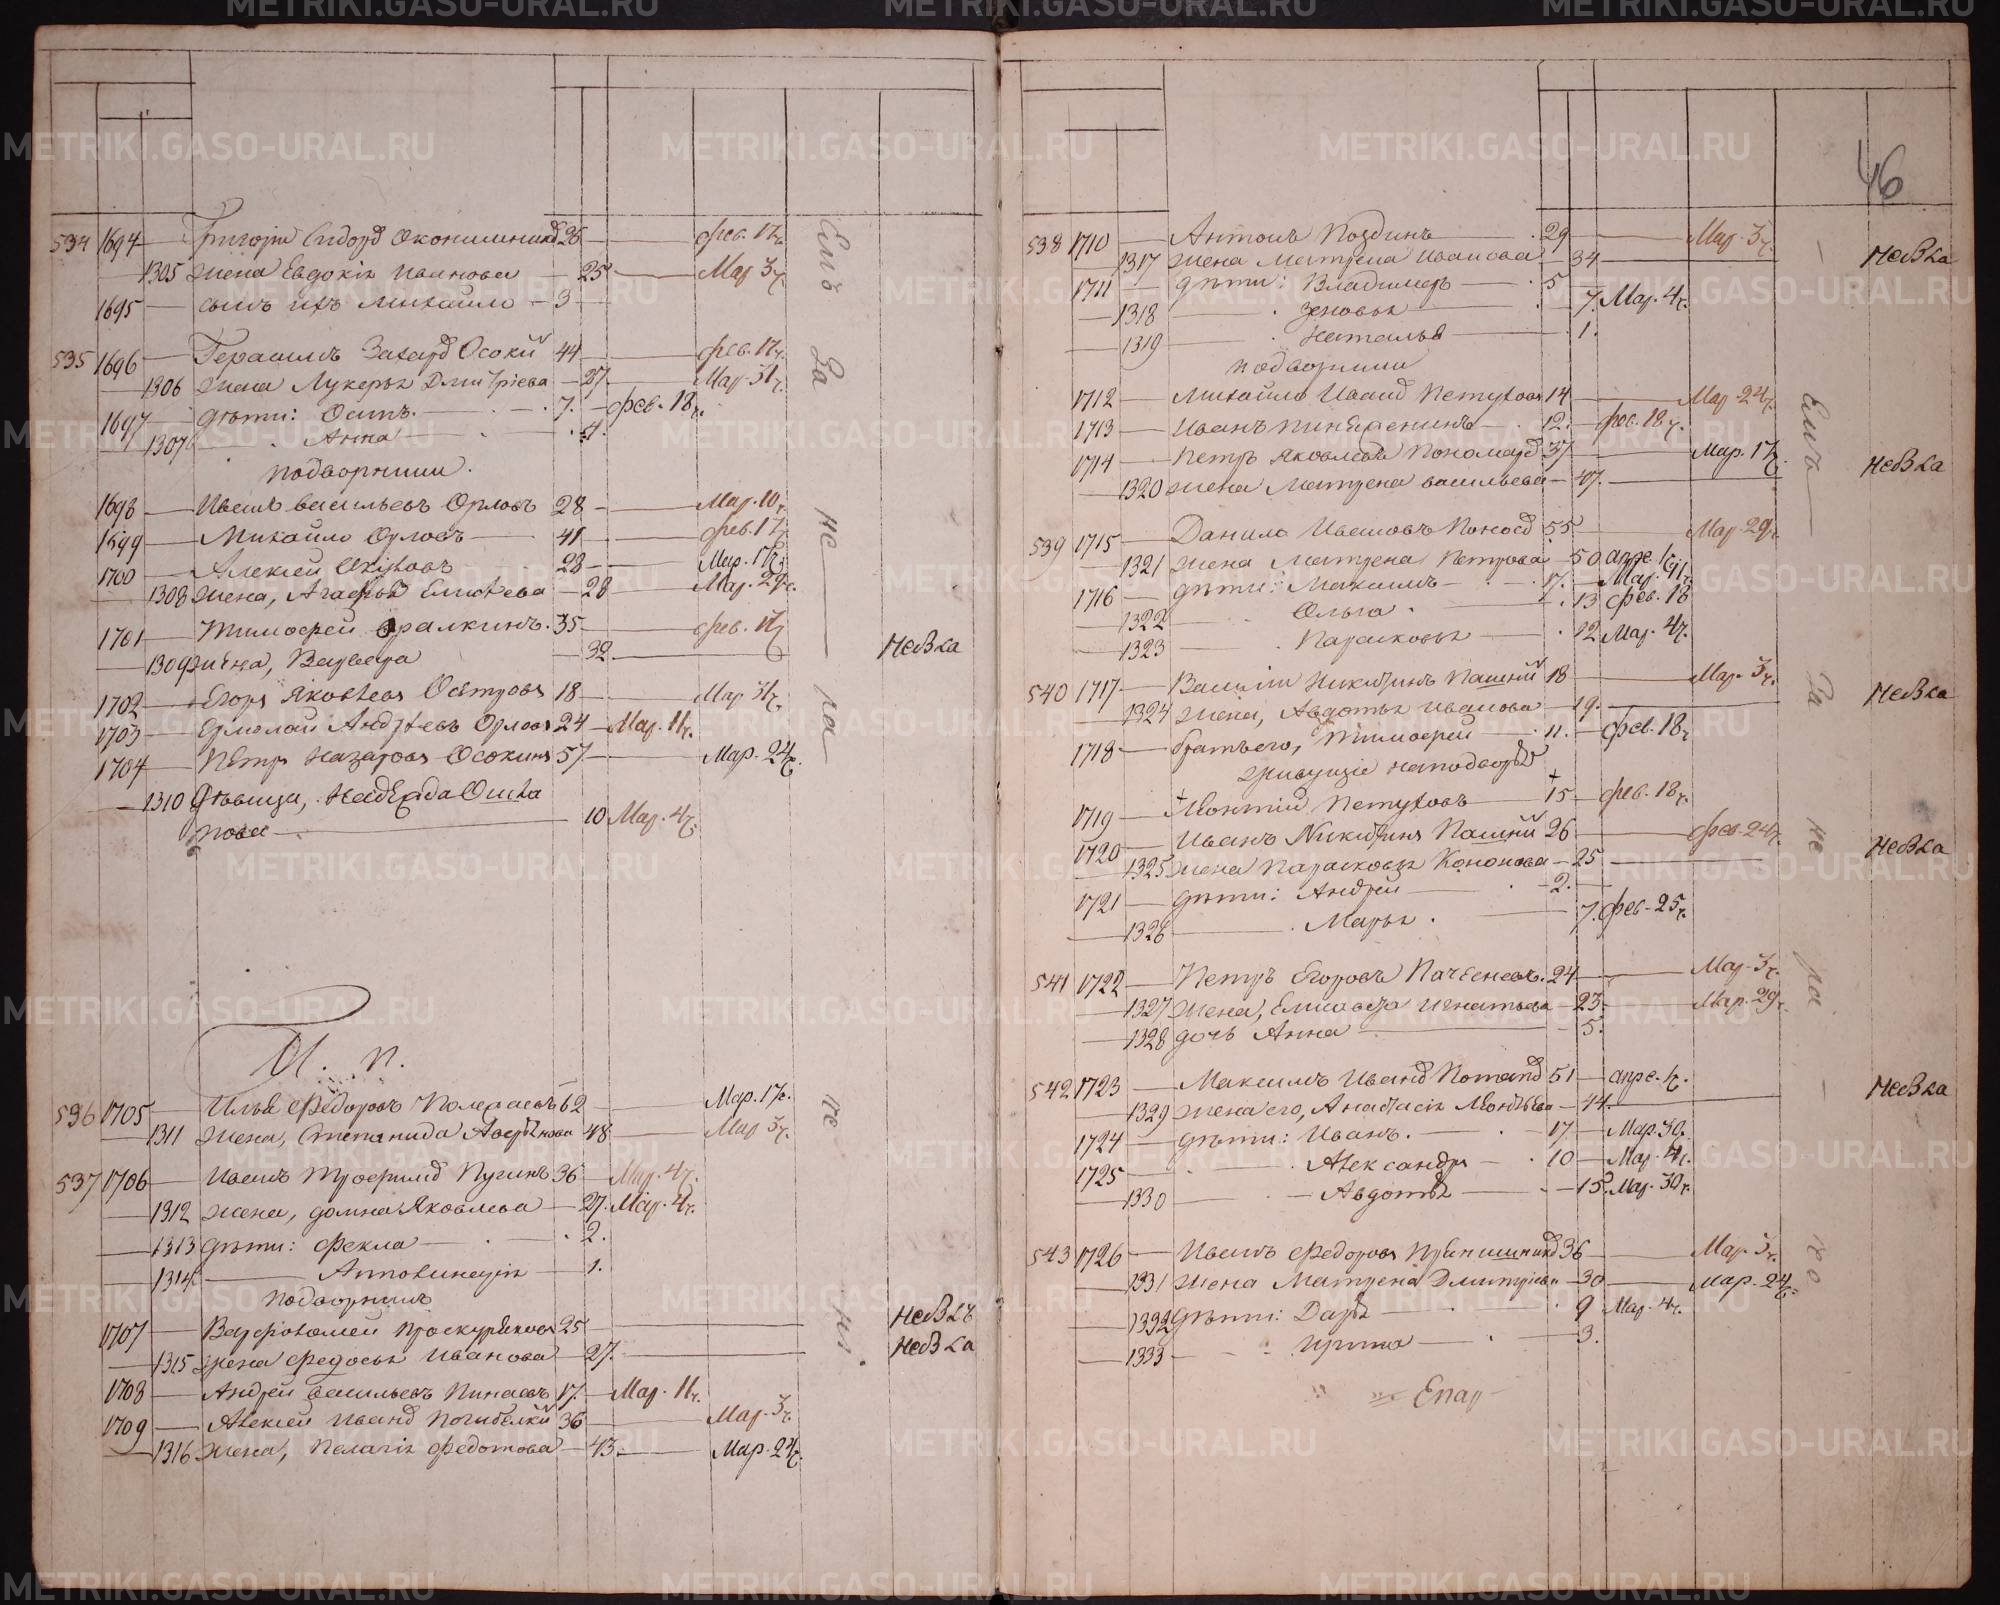 534 1694 — Григорій Сидорв Оконишник 26 — фев. 17ч.
1305 жена Евдокія Иванова — 25 — Мар 3ч.
1695 — сынъ ихъ Михайло — 3
535 1696 — Герасимъ Захарв Осокин 44 — фев. 17ч.
1306 жена Лукерья Дмитріева — 37. — Мар 31ч.
1697 — дѣти: Осипъ. — 7. — фев. 18ч.
1307 — Анна — 4.
подворники.
1698 — Иванъ васильевъ Орловъ 28 — Мар. 10ч.
1699 — Михайло Орловъ — 41 — фев. 17ч.
1700 — Алексѣй 28 — Мар. 17ч.
1308 жена, Агафья — 28 — Мар. 29ч.
1701 — Тимофей 35 — фев. 17ч.
1309 жена, Варвара — 32 — неВка
1702 — Егоръ Яковлевъ Островъ 18 — Мар 31ч.
1703 — Ермолай Андреевъ Орловъ 24 — Мар. 11ч.
1704 — Петръ Назаровъ Осокинъ 57 — Мар. 24ч.
1310 дѣвица, Надежда Осипова — 10 Мар. 4ч.
И. п.
536 1705 — Илья Федоровъ 62 — Мар. 17ч.
1311 жена, Степанида — 48 — Мар 3ч.
537 1706 — Иванъ Трофимв Пугинъ 36 — Мар. 4ч.
1312 жена, домна Яковлева — 27. Мар. 4ч.
1313 дѣти: Фекла — 2.
1314 — Апполинарія — 1.
Подворники
1707 — Варфоломей Проскуряковъ 25 — неВкъ
1315 жена Федосья Иванова — 27. — неВка
1708 — Андрей васильевъ Пинаевъ 17. — Мар. 11ч.
1709 — Алексѣй Иванв 36 — Мар. 3ч.
1316 жена, Пелагія Федотова — 43. — Мар. 24ч.
Емъ За не — ра не ни.
46
538 1710 — Антонъ Поздинъ — 29 — Мар. 3ч.
1317 жена Матрена Иванова — 34 — неВка
1711 — дѣти: Владимеръ — 5 —
1318 — Зеновья — 7. Мар. 4ч.
1319 — Наталья — 1.
подворники
1712 — Михайло Иванв Петуховъ 14 — Мар. 24ч.
1713 — Иванъ 12. — фев. 18ч.
1714 — Петръ Яковлевъ Пономарв 37 — Мар. 17ч.
1320 жена Матрена васильева — 47. — неВка
539 1715 — Данило Ивановъ 55 — Мар. 29ч.
1321 жена Матрена Петрова — 50 апре. 1ч.
1716 — дѣти: Максимъ — 17. — Мар. 11ч.
1322 — Ольга. — 13 фев. 18
1323 — Парасковья — 12 Мар. 4ч.
540 1717 — Василій Никитинъ 18 — Мар. 3ч.
1324 жена, Авдотья Иванова — 19. — неВка
1718 — братъ его, Тимофей — 11. — фев. 18ч.
живущіе на подворьѣ
1719 — Леонтій Петуховъ — 15 — фев. 18ч.
1720 — Иванъ Никитинъ 26 — фев. 24ч.
1325 жена Парасковья Кононова — 25 — неВка
1721 — дѣти: Андрей — 2.
1326 — Марья. — 7. фев. 25ч.
541 1722 — Петръ Егоровъ 24 — Мар. 3ч.
1327 жена, Елисавета Игнатьева — 23. — Мар. 29ч.
1328 дочь Анна — 5.
542 1723 — Максимъ Иванв Потапв 51 — апре. 1ч.
1329 жена его, Анастасія Леонтьева — 44. — неВка
1724 — дѣти: Иванъ. — 17 — Мар. 30ч.
1725 — Александръ — 10 — Мар. 4ч.
1330 — Авдотья — 15. Мар. 30ч.
543 1726 — Иванъ Федоровъ 36 — Мар. 3ч.
1331 жена Матрена Дмитріева — 30 — Мар. 24ч.
1332 дѣти: Дарья — 9 Мар. 4ч.
1333 — Ирина — 3.
Емъ — За не ра — по
Епар